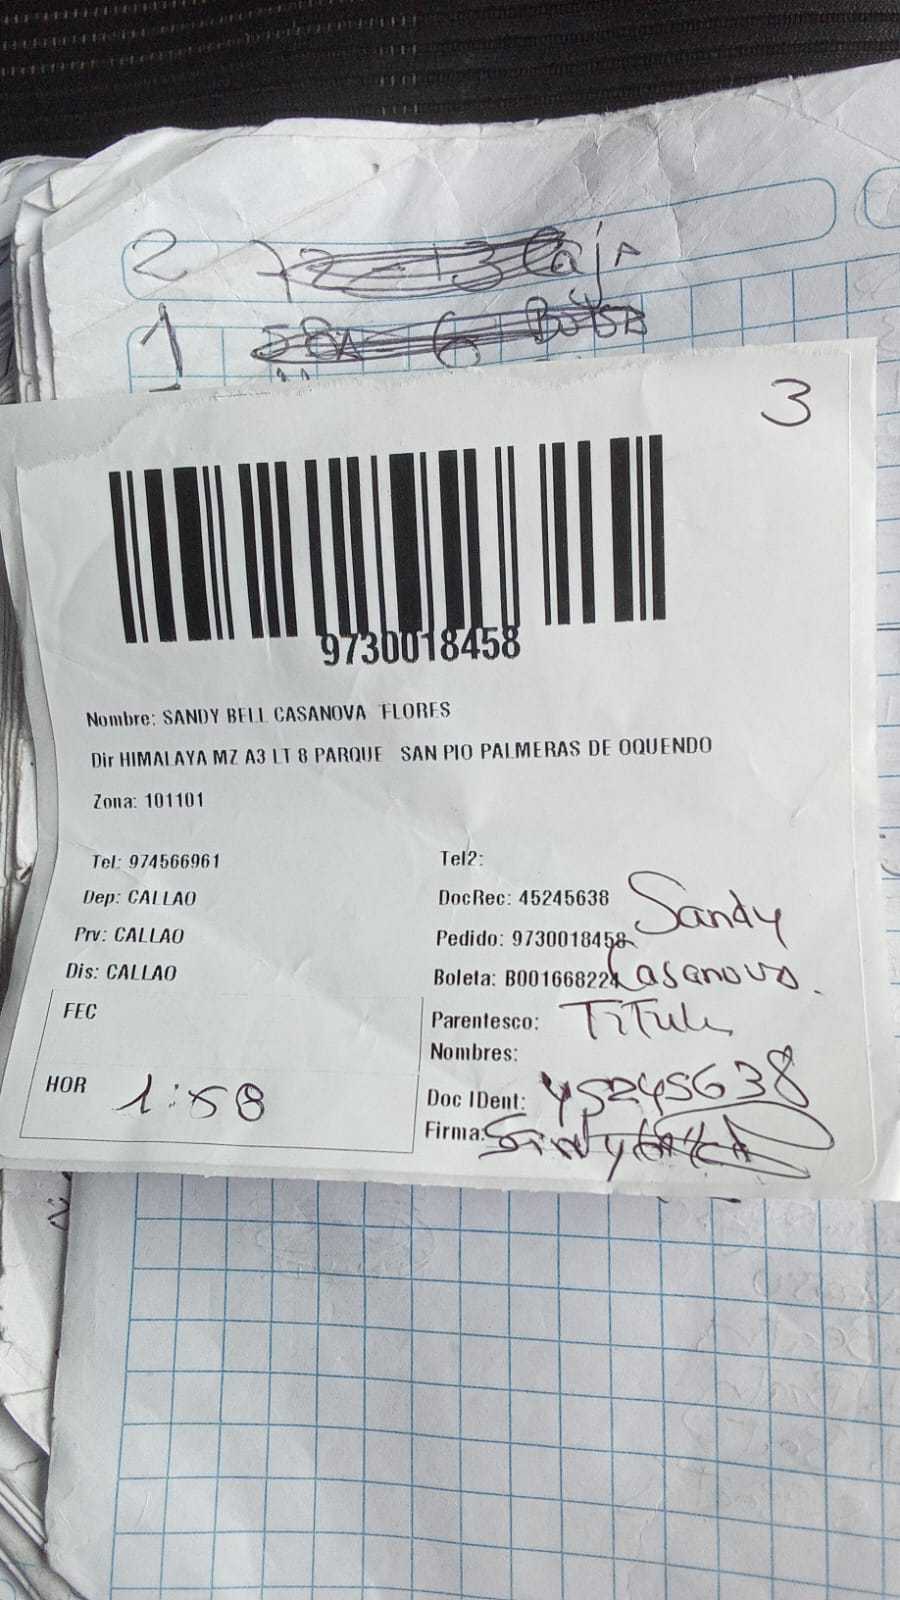 2 72 - 13 Caja
1 6 Bolsa
3
9730018458
Nombre: SANDY BELL CASANOVA FLORES
Dir HIMALAYA MZ A3 LT 8 PARQUE SAN PIO PALMERAS DE OQUENDO
Zona: 101101
Tel: 974566961 Tel2:
Dep: CALLAO DocRec: 45245638 Sandy
Prv: CALLAO Pedido: 9730018458
Dis: CALLAO Boleta: B001668224 Casanova.
FEC Parentesco: Titular
Nombres:
HOR 1:58 Doc IDent: 45245638
Firma: